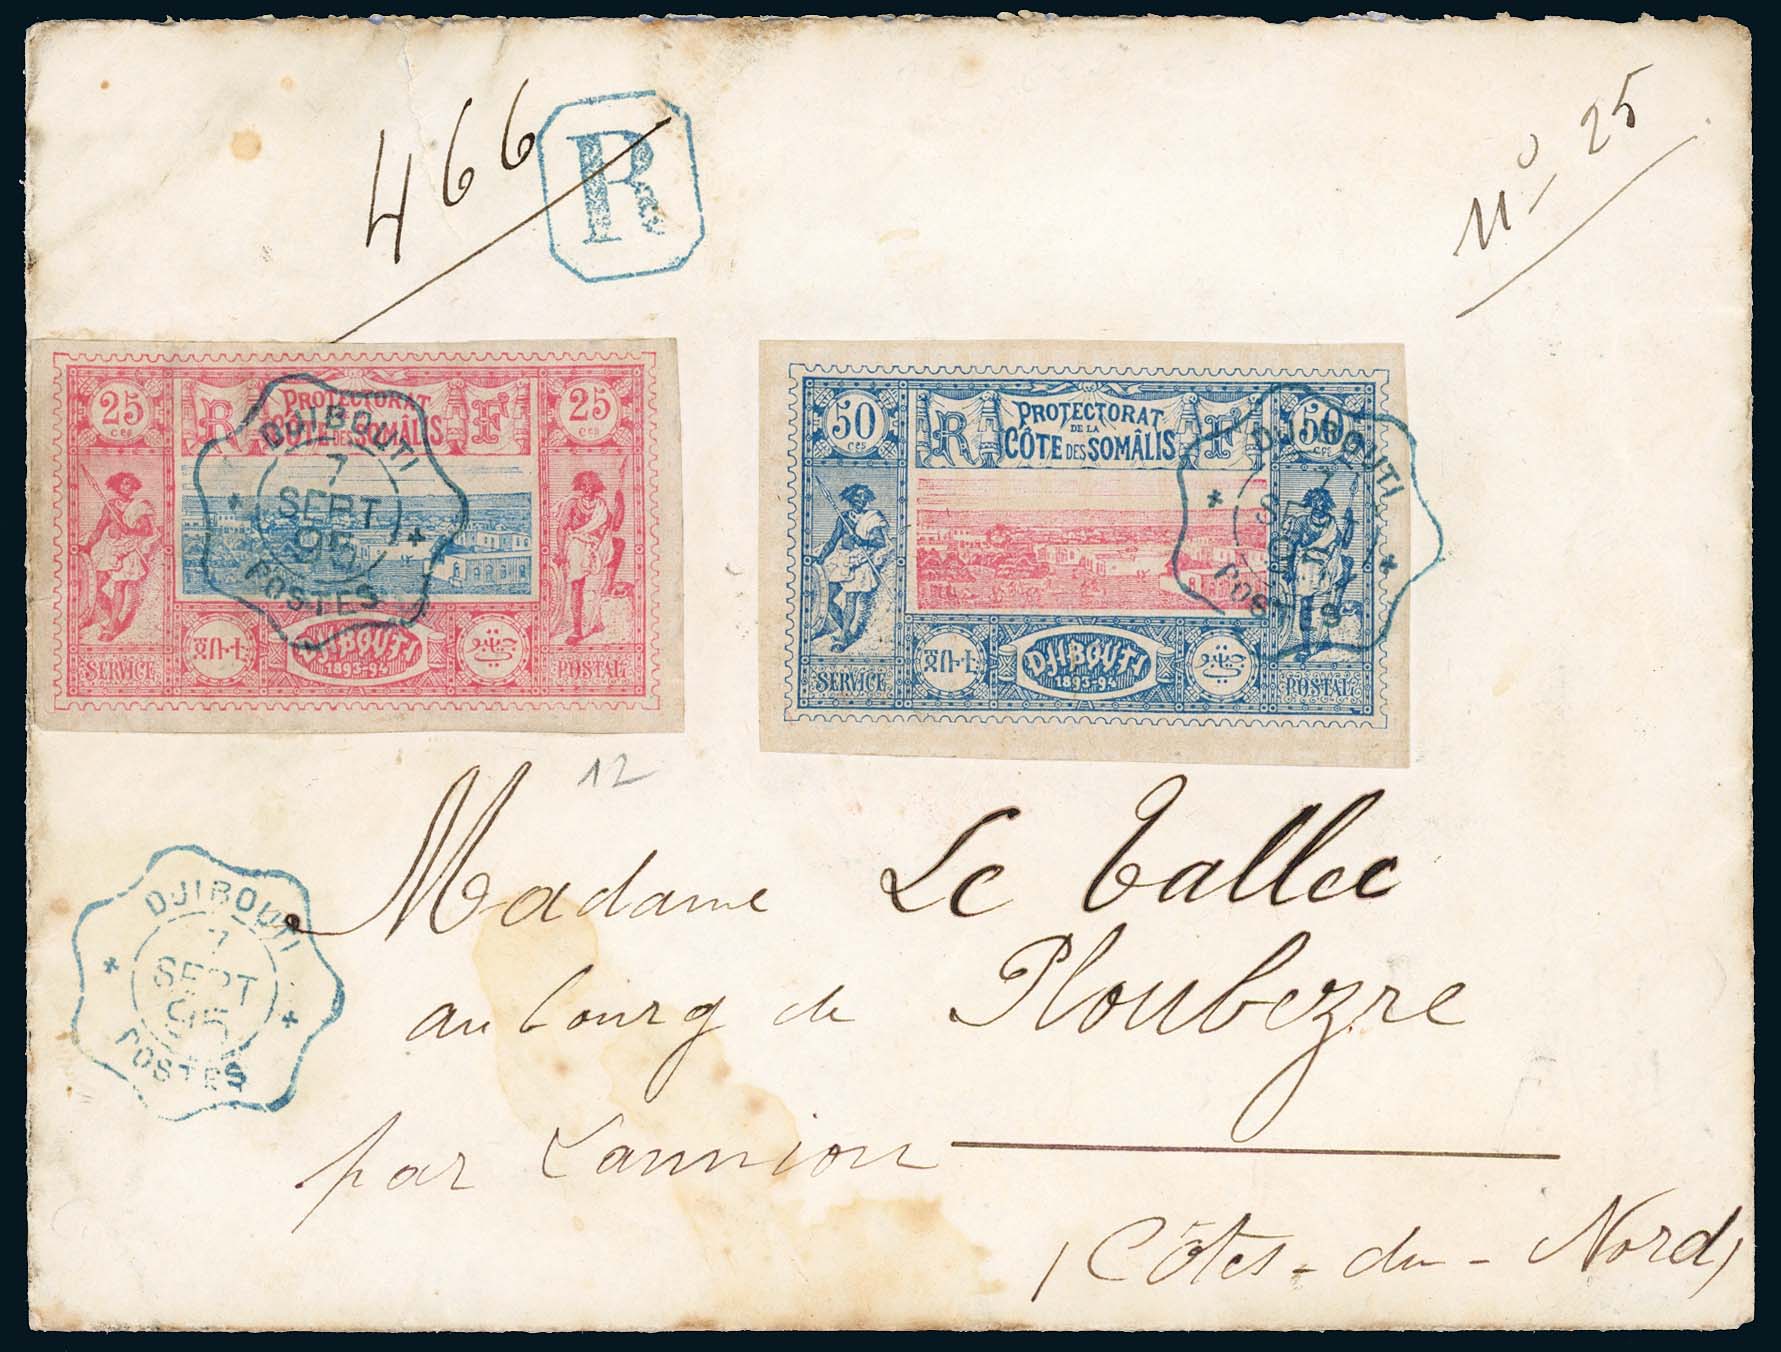 466
R
No 25
25 ces
R
PROTECTORAT
CÔTE DES SOMÂLIS
F
25 ces
DJIBOUTI
7
SEPT
95
POSTES
SERVICE
DJIBOUTI
1893-94
POSTAL
50 ces
R
PROTECTORAT
DE LA
CÔTE DES SOMÂLIS
F
50 ces
DJIBOUTI
7
SEPT
95
POSTES
SERVICE
DJIBOUTI
1893-94
POSTAL
12
Madame Le Tallec
au bourg de Ploubezre
par Lannion
(Côtes-du-Nord)
DJIBOUTI
7
SEPT
95
POSTES